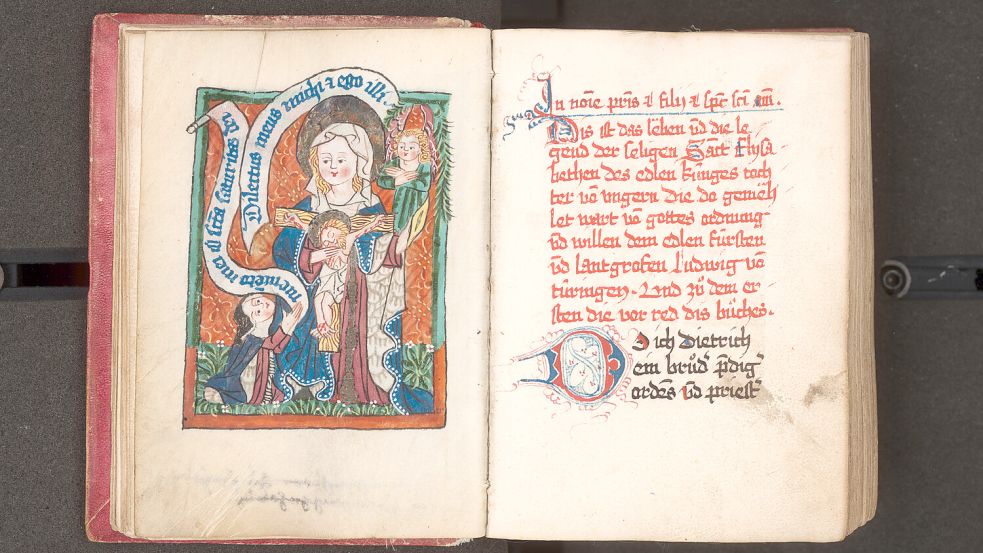 Dilectus meus michi ⁊ ego illi.
In noīe prīs ⁊ filij ⁊ sp̄c sc̄i am̄.
Dis ist das lëben vn̄d die le
gend der seligen Sant Elysa
bethen des edlen kúnges toch
ter vō vngern die do gemëh
let wart vō gottes ordnung
vn̄d willen dem edlen fúrsten
vn̄d lantgrofen Ludwig vō
túringen. Vnd zů dem er
sten die vor red dis bůches.
O ich dietrich
ein brůd' p̄dig'
ordēs vn̄d priest'